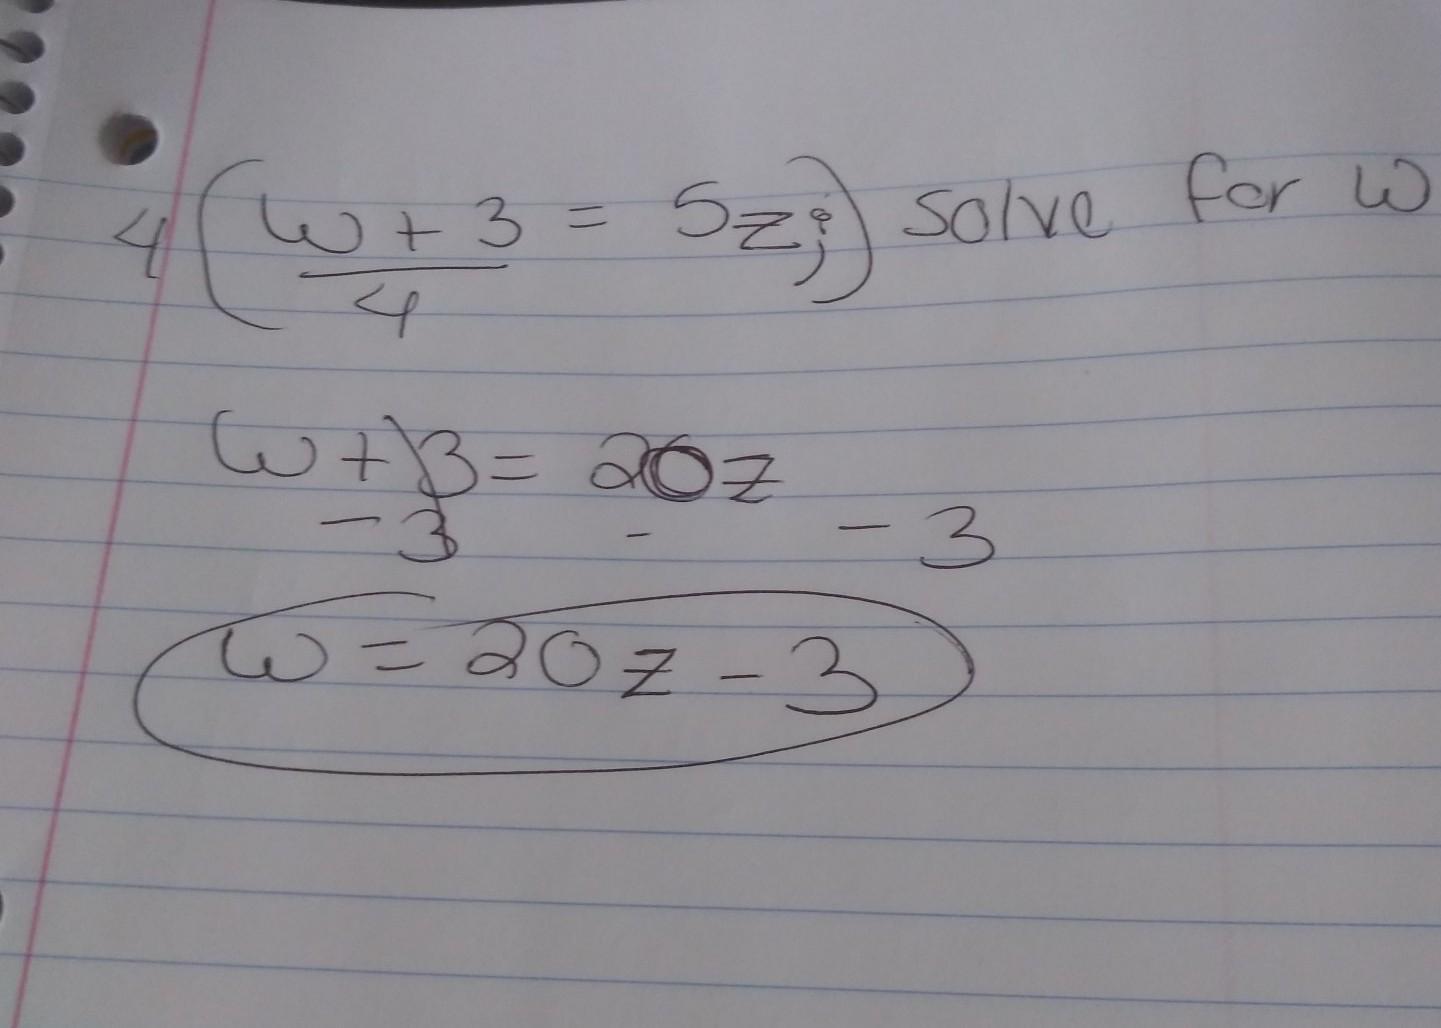 4(w + 3 = 5z;) solve for w
4
w + 3 = 20z
- 3 - - 3
w = 20z - 3